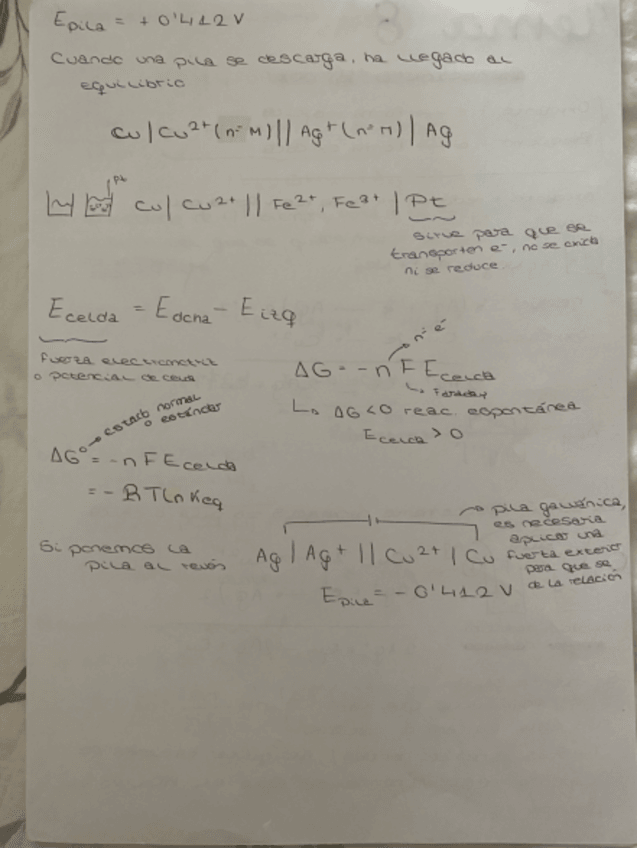 E pila = + 0'412 V
Cuando una pila se descarga, ha llegado al
equilibrio
Cu | Cu²⁺ (nº M) || Ag⁺ (nº M) | Ag
Pt
Cu | Cu²⁺ || Fe²⁺, Fe³⁺ | Pt
sirve para que se
transporten e⁻, no se oxida
ni se reduce
E celda = E dcha - E izq
fuerza electromotriz
o potencial de celda
nº e⁻
ΔG = -n F E celda
↳ Faraday
↳ ΔG < 0 reac. espontánea
E celda > 0
estado normal
o estándar
ΔG° = -n F E celda
= -RT ln Keq
Si ponemos la
pila al revés
Ag | Ag⁺ || Cu²⁺ | Cu
E pila = - 0'412 V
pila galvánica,
es necesaria
aplicar una
fuerza exterior
para que se
de la relación